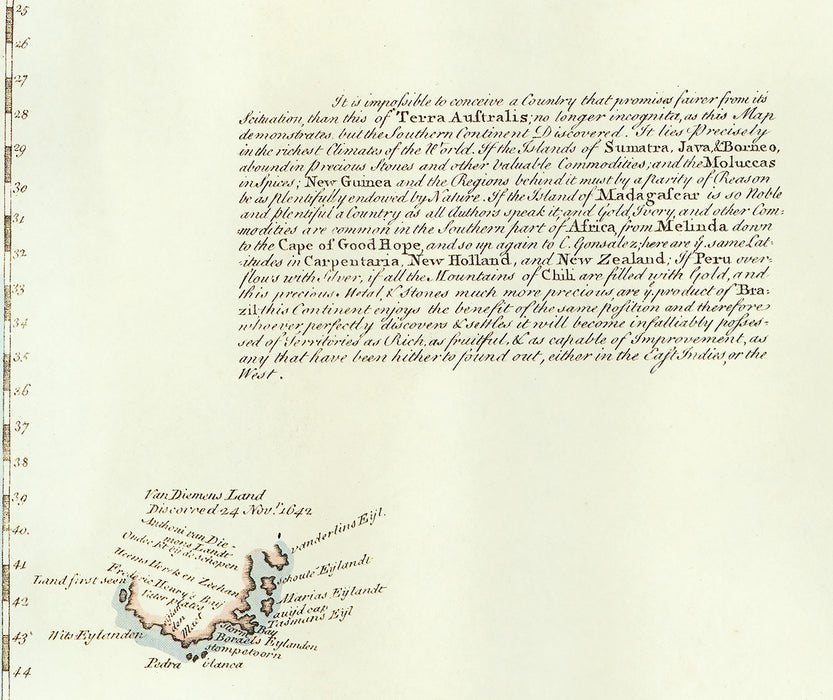 25
26
27
28
29
30
31
32
33
34
35
36
37
38
39
40.
41
42
43
44
It is impoſsible to conceive a Country that promises fairer from its
Scituation, than this of Terra Auſtralis; no longer incognita, as this Map
demonstrates, but the Southern Continent Discovered. It lies Precisely
in the richest Climates of the World. If the Islands of Sumatra, Java, & Borneo,
abound in Precious Stones and other Valuable Commodities; and the Moluccas
in Spices; New Guinea and the Regions behind it must by a parity of Reason
be as plentifully endowed by Nature. If the Island of Madagaſcar is so Noble
and plentiful a Country as all Authors speak it, and Gold, Ivory, and other Com:
modities are common in the Southern part of Africa, from Melinda down
to the Cape of Good Hope, and so up again to C. Gonsalez; here are ẏ. same Lat-
:itudes in Carpentaria, New Holland, and New Zealand; If Peru over-
flows with Silver, if all the Mountains of Chili are filled with Gold, and
this precious Metal, & Stones much more precious, are ẏ. product of Bra:
zil; this Continent enjoys the benefit of the same poſition and therefore
whoever perfectly discovers & settles it will become infalliably poſses-
sed of Territories as Rich, as fruitful, & as capable of Improvement, as
any that have been hitherto found out, either in the Eaſt Indies, or the
West.
Van Diemens Land
Discovred 24 Nov.r 1642
Anthoni van Die-
mens Landt
schepen
vanderlins Eijl.
schoute Eijlandt
Frederic Henry's Bay
Land first seen
Marias Eijlandt
Tasmans Eijl
Storm Bay
Wits Eijlanden
Boraels Eijlanden
stompetoorn
Pedra blanca